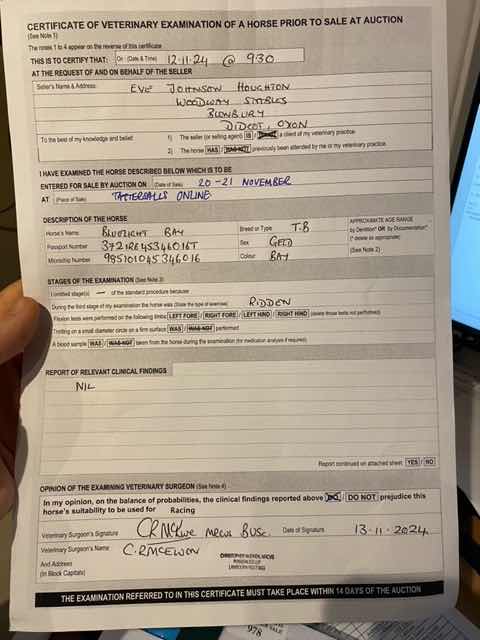 CERTIFICATE OF VETERINARY EXAMINATION OF A HORSE PRIOR TO SALE AT AUCTION
(See Note 1)
The notes 1 to 4 appear on the reverse of this certificate
THIS IS TO CERTIFY THAT: On: (Date & Time) 12.11.24 @ 930
AT THE REQUEST OF AND ON BEHALF OF THE SELLER
Seller's Name & Address: EVE JOHNSON HOUGHTON
WOODWAY STABLES
BLEWBURY
DIDCOT, OXON
To the best of my knowledge and belief: 1) The seller (or selling agent) IS / a client of my veterinary practice.
2) The horse HAS / HAS NOT previously been attended by me or my veterinary practice.
I HAVE EXAMINED THE HORSE DESCRIBED BELOW WHICH IS TO BE
ENTERED FOR SALE BY AUCTION ON (Date of Sale) 20-21 NOVEMBER
AT (Place of Sale) TATTERSALLS ONLINE
DESCRIPTION OF THE HORSE
Horse's Name BLUELIGHT BAY Breed or Type T.B
Passport Number Sex GELD
Microchip Number 985101045346016 Colour BAY
APPROXIMATE AGE RANGE
by Dentition* OR by Documentation*
(* delete as appropriate)
(See Note 2)
STAGES OF THE EXAMINATION (See Note 3)
I omitted stage(s) — of the standard procedure because
During the third stage of my examination the horse was (State the type of exercise) RIDDEN
Flexion tests were performed on the following limbs: LEFT FORE / RIGHT FORE / LEFT HIND / RIGHT HIND (delete those tests not performed)
Trotting on a small diameter circle on a firm surface WAS / WAS NOT performed
A blood sample WAS / WAS NOT taken from the horse during the examination (for medication analysis if required).
REPORT OF RELEVANT CLINICAL FINDINGS
NIL
Report continued on attached sheet YES / NO
OPINION OF THE EXAMINING VETERINARY SURGEON (See Note 4)
In my opinion, on the balance of probabilities, the clinical findings reported above DO / DO NOT prejudice this
horse's suitability to be used for Racing
Veterinary Surgeon's Signature MRCVS BVSc. Date of Signature 13.11.2024
Veterinary Surgeon's Name C.R MCEWEN
And Address
(In Block Capitals)
THE EXAMINATION REFERRED TO IN THIS CERTIFICATE MUST TAKE PLACE WITHIN 14 DAYS OF THE AUCTION
978